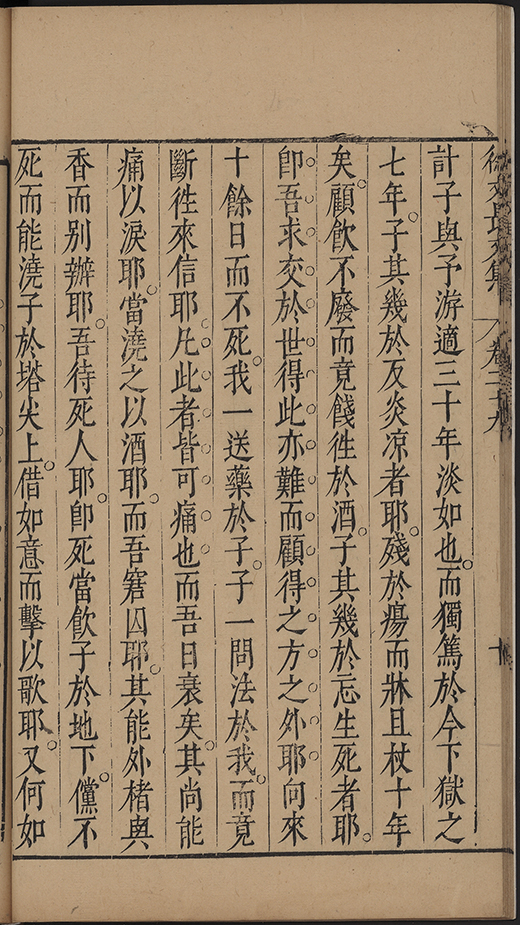 徐文長文集 卷二十九 十
計子與予游適三十年淡如也。而獨篤於今下獄之
七年。子其幾於反炎凉者耶。殘於瘍而牀且杖十年
矣。顧飮不廢而竟餞徃於酒。子其幾於忘生死者耶。
卽吾求交於世得此亦難而顧得之方之外耶向來
十餘日而不死。我一送藥於子。子一問法於我。而竟
斷徃來信耶凡此者皆可痛也而吾日衰矣其尚能
痛以淚耶。當澆之以酒耶。而吾窘囚耶。其能外楮與
香而别辦耶。吾待死人耶。卽死當飮子於地下。儻不
死而能澆子於塔尖上。借如意而擊以歌耶。又何如